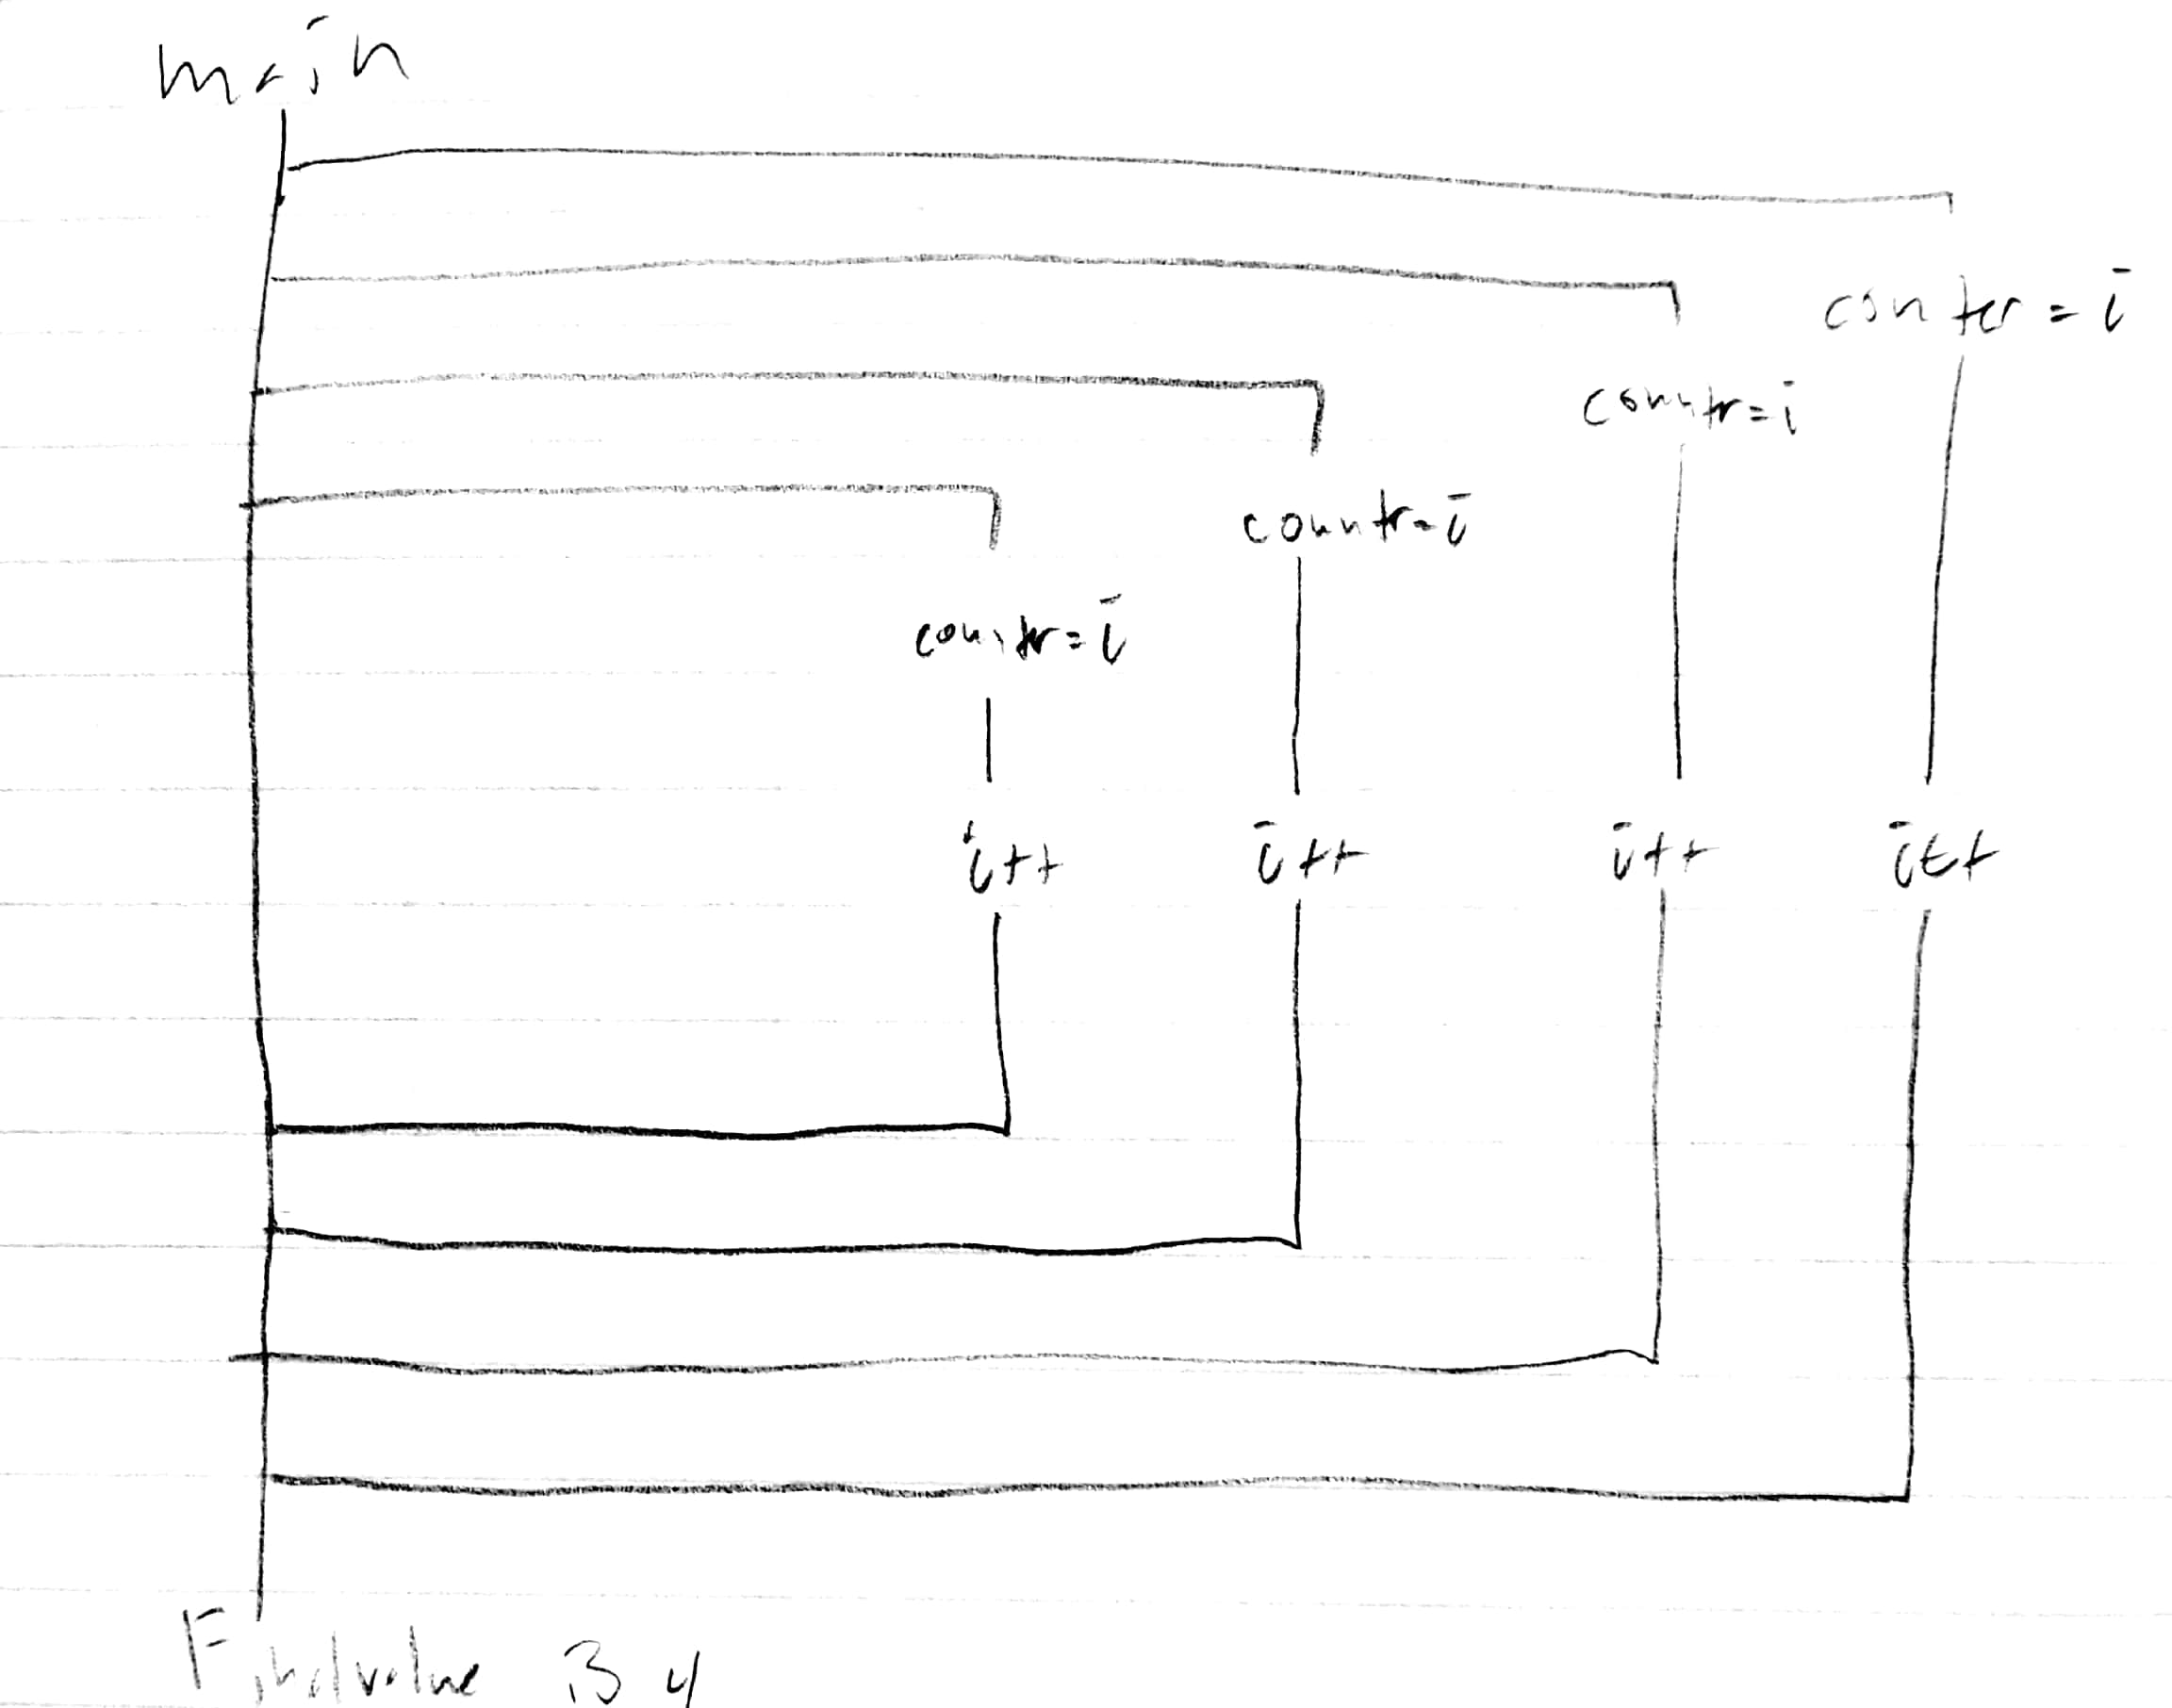 main
counter = i
countr = i
countr = i
countr = i
i++ i++ i++ i++
Final value is 4